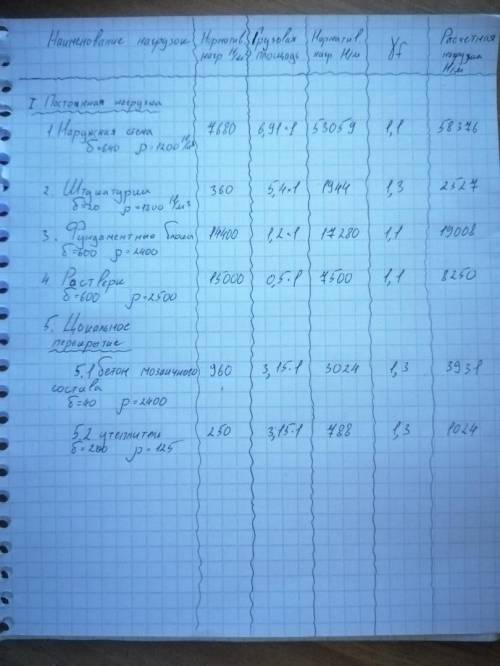 Наименование нагрузок Норматив нагр. Н/м² Грузовая площадь Норматив нагр. Н/м γf Расчетная нагрузка Н/м
I Постоянная нагрузка
1. Наружная стена 7680 6,91·1 53059 1,1 58376
δ=640 ρ=1200
2. Штукатурка 360 5,4·1 1944 1,3 2527
δ=20
3. Фундаментные блоки 14400 1,2·1 17280 1,1 19008
δ=600 ρ=2400
4. Ростверк 15000 0,5·1 7500 1,1 8250
δ=600 ρ=2500
5. Цокольное
перекрытие
5.1 бетон мозаичного 960 3,15·1 3024 1,3 3931
состава
δ=40 ρ=2400
5.2 утеплитель 250 3,15·1 788 1,3 1024
δ=200 ρ=125